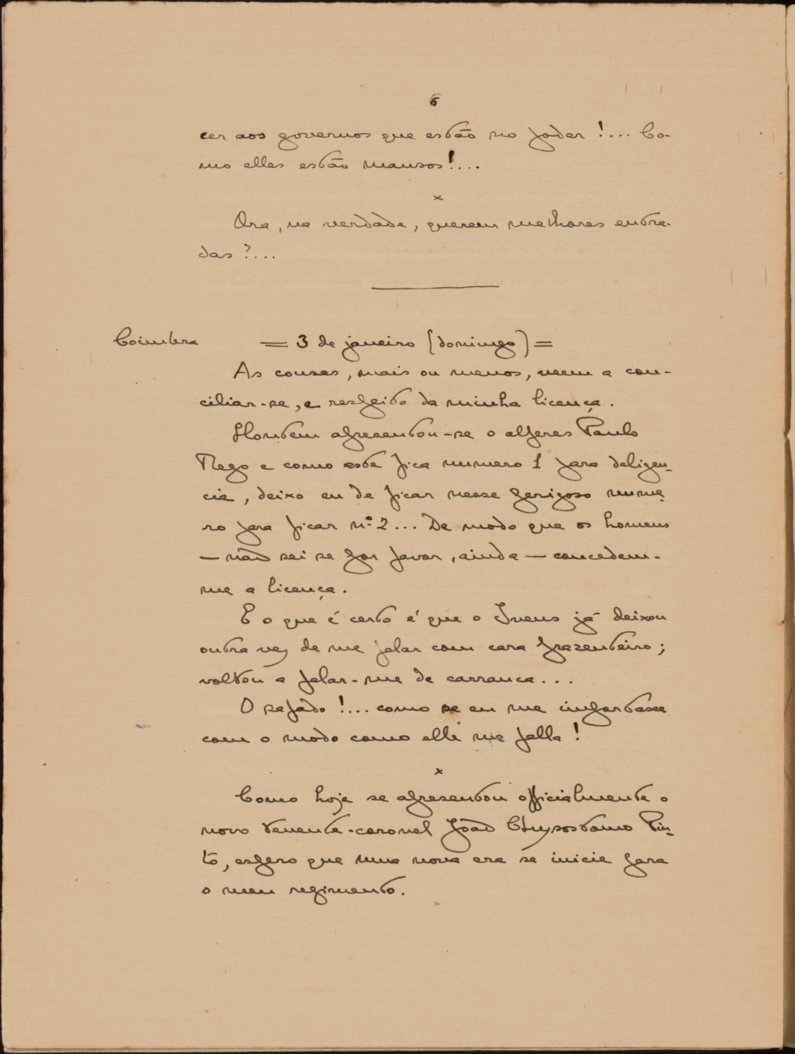 6
cer aos governos que estão no poder !... Co-
mo elles estão mansos !...
x
Ora, na verdade, querem melhores entra-
das ?...
Coimbra = 3 de janeiro (domingo) =
As cousas, mais ou menos, veem a con-
ciliar-se, a respeito da minha licença.
Hontem apresentou-se o alferes Paulo
Rego e como este fica numero 1 para deligen-
cia, deixo eu de ficar nesse perigoso nume-
ro para ficar nº 2... De modo que os homens
— não sei se por favor, ainda — concedem-
me a licença.
E o que é certo é que o Ivens já deixou
outra vez de me falar com cara prazenteira;
voltou a falar-me de carranca...
O safado !... como se eu me importasse
com o modo como elle me falla !
x
Como hoje se apresentou officialmente o
novo tenente-coronel João Chrysostomo Pin-
to, espero que uma nova era se inicie para
o meu regimento.